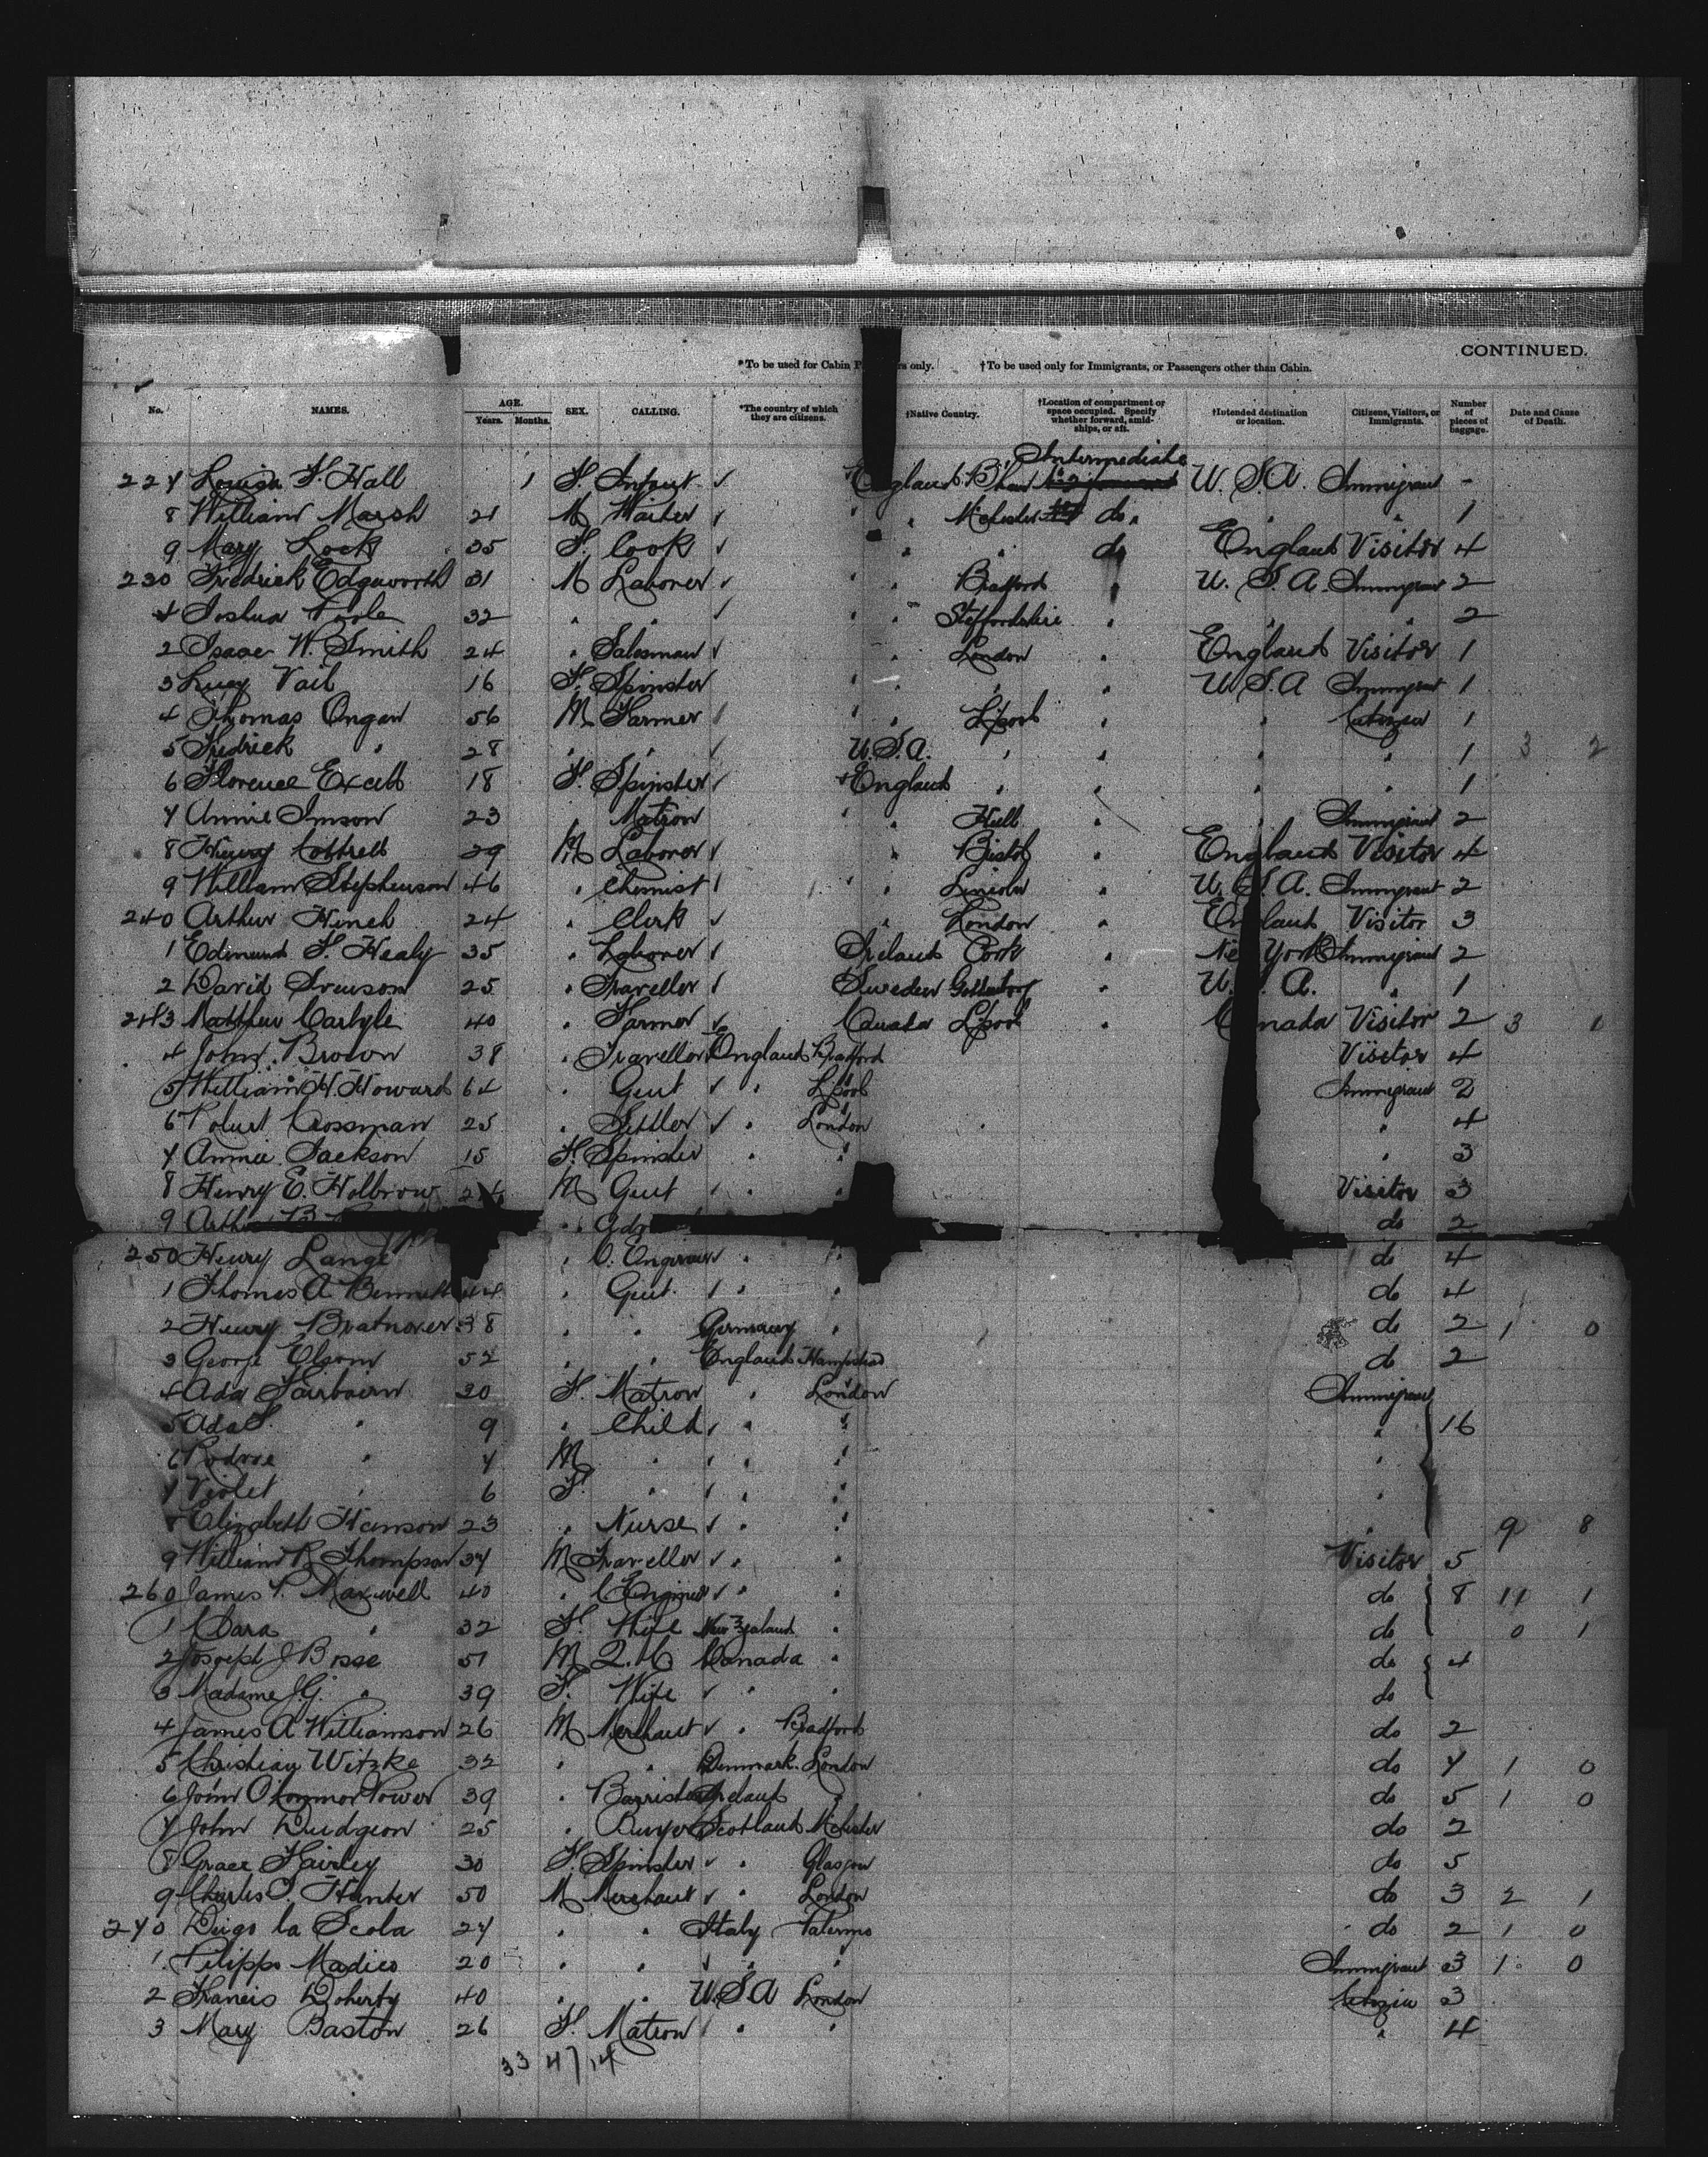 CONTINUED.
*To be used for Cabin P rs only. †To be used only for Immigrants, or Passengers other than Cabin.
No. NAMES. AGE. Years. Months. SEX. CALLING. *The country of which they are citizens. †Native Country. †Location of compartment or space occupied. Specify whether forward, amidships, or aft. †Intended destination or location. Citizens, Visitors, or Immigrants. Number of pieces of baggage. Date and Cause of Death.
Intermediate
227 Louisa F. Hall 1 F. Infant ✓ England B'ham U.S.A. Immigrant -
8 William Marsh 21 M Waiter ✓ " " M'chester do " " 1
9 Mary Lock 35 F. Cook ✓ " " do England Visitor 4
230 Fredrick Edgaworth 31 M Laborer ✓ " " Bradford " U.S.A. Immigrant 2
1 Joshua Poole 32 " " ✓ " " Staffordshire " " " 2
2 Isaac W. Smith 24 " Salesman ✓ " London " England Visitor 1
3 Lucy Vail 16 F. Spinster " " " " U.S.A Immigrant 1
4 Thomas Ongan 56 M Farmer " " L'pool " " Citizen 1
5 Fredrick " 28 " " ✓ U.S.A. " " " " 1 3 2
6 Florence 18 F. Spinster ✓ England " " " " 1
7 Annie Imson 23 Matron " " Hull " Immigrant 2
8 Henry Cottrell 29 M Laborer ✓ " Bristol " England Visitor 4
9 William Stephenson 46 " Chemist " Lincoln " U.S.A. Immigrant 2
240 Arthur Hinch 24 " Clerk ✓ " London " England Visitor 3
1 Edmund F. Healy 35 " Laborer ✓ Ireland Cork " New York Immigrant 2
2 David Svenson 25 " Traveller ✓ Sweden " U. A. " 1
243 Matthew Carlyle 40 " Farmer ✓ Canada L'pool " Canada Visitor 2 3
4 John Brown 38 " Traveller England Bradford Visitor 4
5 William H. Howard 64 " Gent ✓ " L'pool Immigrant 2
6 Robert Crossman 25 " Settler ✓ " London " 4
7 Annie Jackson 15 F. Spinster " " " 3
8 Henry E. Holbrow M Gent " " Visitor 3
9 " do 2
250 Henry Lange " C. Engineer ✓ " " do 4
1 Thomas A. Bennett 44 " Gent. " " do 4
2 Henry Bratnover 38 " " Germany " do 2 1 0
3 George Elsom 52 " " England Hampstead do 2
4 Ada Fairbairn 30 F. Matron " London Immigrant
5 Ada F. " 9 " Child ✓ " " " 16
6 " 7 M " " " "
7 Violet " 6 F. " ✓ " " "
8 Elizabeth Hanson 23 " Nurse ✓ " " " 9 8
9 William R. Thompson 37 M Traveller ✓ " " Visitor 5
260 James P. Maxwell 40 " C Engineer ✓ " " do 8 11 1
1 Clara " 32 F. Wife New Zealand " do 0 1
2 Joseph J Bosse 51 M Q.C Canada " do 4
3 Madame J.G. " 39 F. Wife ✓ " " do
4 James A Williamson 26 M Merchant ✓ " Bradford do 2
5 Christian Witzke 32 " " Denmark. London do 7 1 0
6 John O'Connor Power 39 " Barrister Ireland " do 5 1 0
7 John Dudgeon 25 " Buyer Scotland M'chester do 2
8 Grace Fairley 30 F. Spinster ✓ " Glasgow do 5
9 Charles J. Hunter 50 M Merchant ✓ " London do 3 2 1
270 Diego la Scola 27 " " Italy Palermo do 2 1 0
1 Filippo Madico 20 " " " " Immigrant 3 1 0
2 Francis Doherty 40 " " U.S.A London Citizen 3
3 Mary Baston 26 F. Matron " " " 4
33 47 14